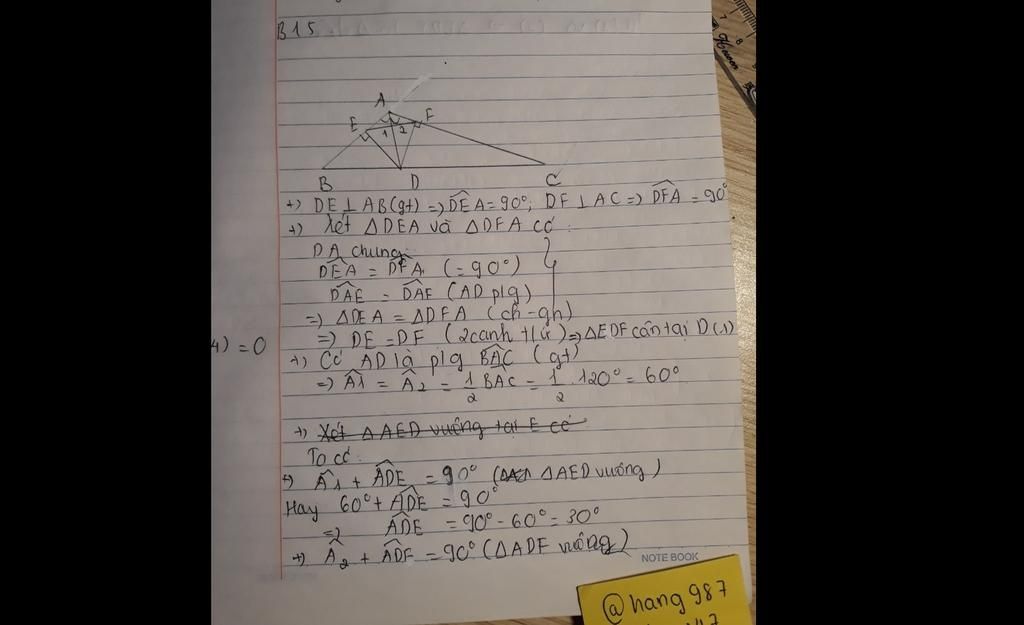 B15
A
E
F
1 2
B D C
+) DE ⊥ AB (gt) => DÊA = 90°; DF ⊥ AC => DF̂A = 90°
+) Xét △DEA và △DFA có:
DA chung
DÊA = DF̂A (= 90°)
DÂE = DÂF (AD p/g)
=> △DEA = △DFA (ch - gh)
=> DE = DF (2 cạnh t/ứ) => △EDF cân tại D (1)
4) = 0
+) Có AD là p/g BÂC (gt)
=> Â1 = Â2 = 1/2 BAC = 1/2 . 120° = 60°
+) Xét △AED vuông tại E có
Ta có:
+) Â1 + AD̂E = 90° (△AED vuông)
Hay 60° + AD̂E = 90°
=> AD̂E = 90° - 60° = 30°
+) Â2 + AD̂F = 90° (△ADF vuông)
NOTE BOOK
@hang987